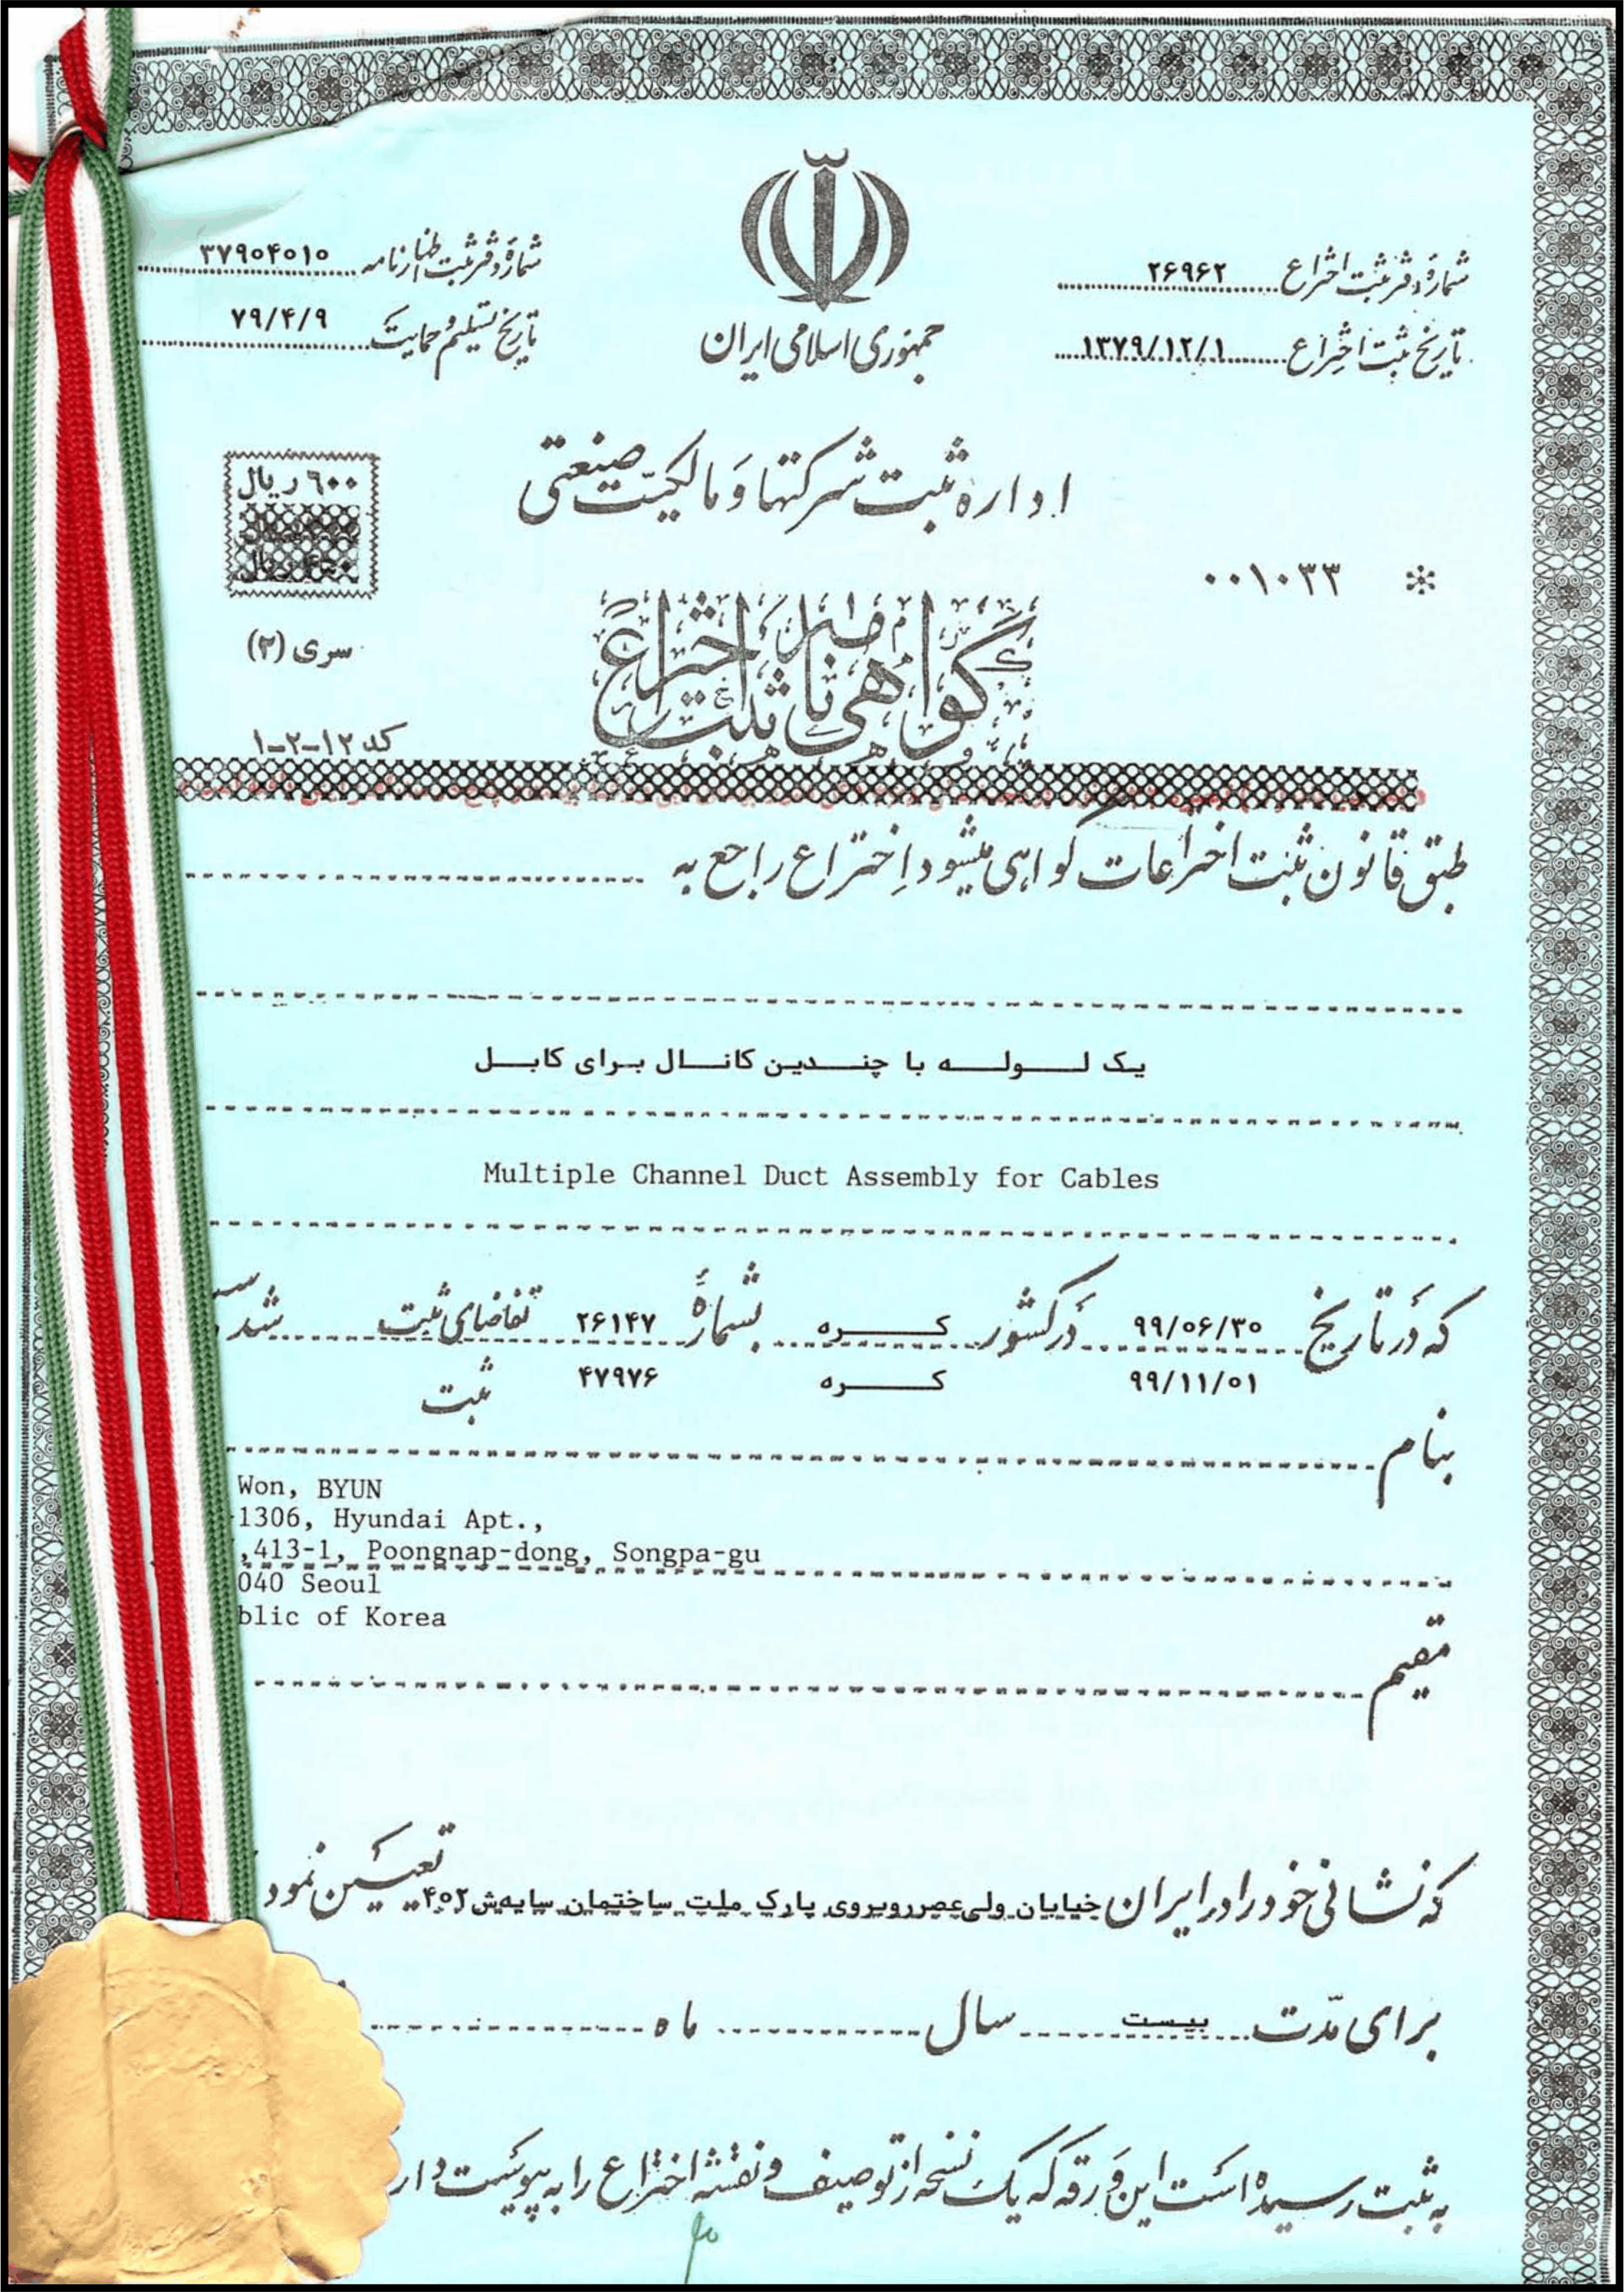 شمارهٔ دفتر ثبت اختراع ۲۶۹۶۲
تاریخ ثبت اختراع ۱۳۷۹/۱۲/۱
جمهوری اسلامی ایران
شمارهٔ دفتر ثبت اظهارنامه ۳۷۹۰۴۰۱۰
تاریخ تسلیم و حمایت ۷۹/۴/۹
اداره ثبت شرکتها و مالکیت صنعتی
۶۰۰ ریال
۰۰۱۰۳۳
گواهی نامه ثبت اختراع
سری (۲)
کد ۱۲-۲-۱
طبق قانون ثبت اختراعات گواهی میشود اختراع راجع به
یک لوله با چندین کانال برای کابل
Multiple Channel Duct Assembly for Cables
که در تاریخ ۹۹/۰۶/۳۰ در کشور کره بشمارهٔ ۲۶۱۴۷ تقاضای ثبت شده
۹۹/۱۱/۰۱ کره ۴۷۹۷۶ ثبت
بنام
Won, BYUN
1306, Hyundai Apt.,
,413-1, Poongnap-dong, Songpa-gu
040 Seoul
blic of Korea
مقیم
که نشانی خود را در ایران خیابان ولی‌عصر روبروی پارک ملت ساختمان سایه ش ۴۰۲ تعیین نمود
برای مدّت بیست سال ماه
به ثبت رسیده است این ورقه که یک نسخه از توصیف و نقشه اختراع را به پیوست دار